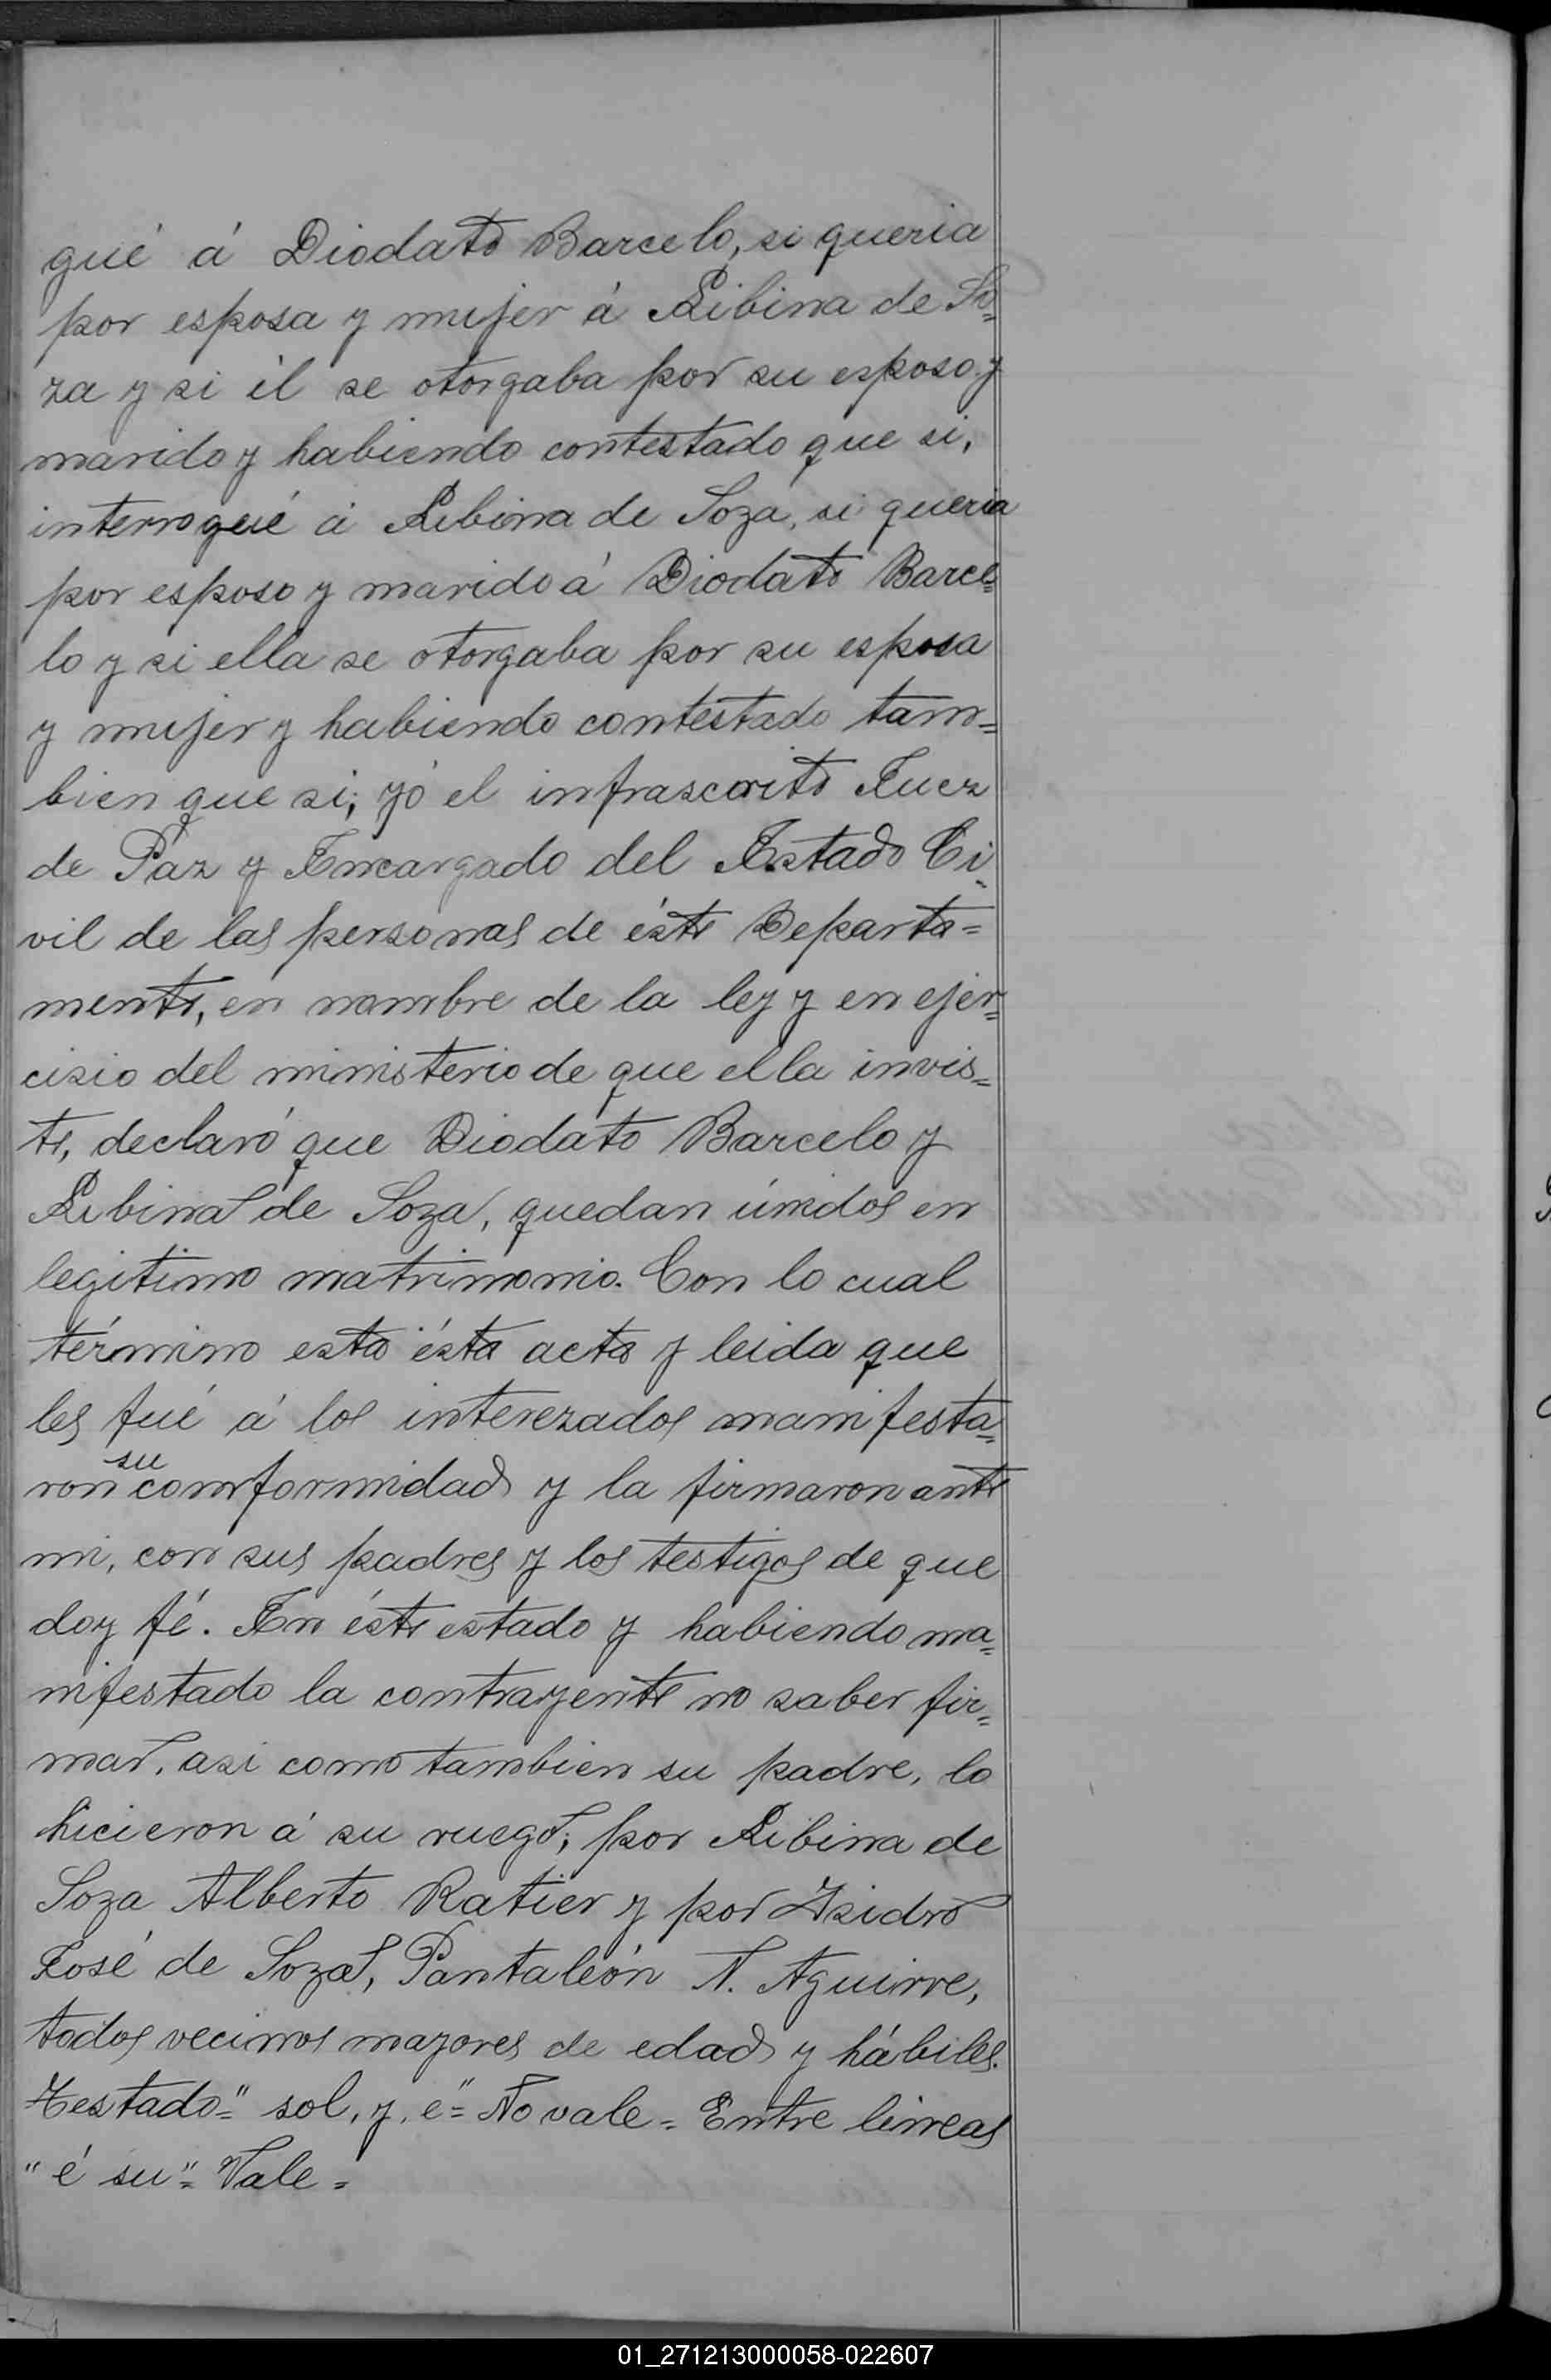 gué á Diodato Barcelo, si queria
por esposa y mujer á Libina de So=
za y si él se otorgaba por su esposo y
marido y habiendo contestado que si,
interrogué á Libina de Soza, si queria
por esposo y marido á Diodato Barce=
lo y si ella se otorgaba por su esposa
y mujer y habiendo contestado tam=
bien que si; yó el infrascrito Juez
de Paz y Encargado del Estado Ci=
vil de las personas de éste Departa=
mento, en nombre de la ley y en ejer=
cisio del ministerio de que ella invis=
te, declaró que Diodato Barcelo y
Libina de Soza, quedan únidos en
legitimo matrimonio. Con lo cual
término esta ésta acta y leida que
les fué á los interezados manifesta=
ron su comformidad y la firmaron ante
mi, con sus padres y los testigos de que
doy fé. En éste estado y habiendo ma=
nifestado la contrayente no saber fir=
mar, asi como tambien su padre, lo
hicieron á su ruego; por Libina de
Soza Alberto Ratier y por Isidro
José de Soza, Pantaleón N. Aguirre,
todos vecinos mayores de edad y hábiles.
Testado=" sol, y, e"= No vale = Entre lineas
"é su"= Vale =
01_271213000058-022607